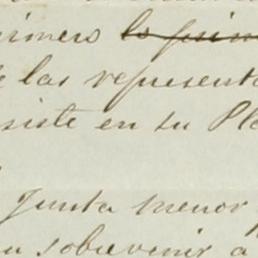 rimero lo prim
e las represent
siste en su Pla
Junta menor
sobrevenir a